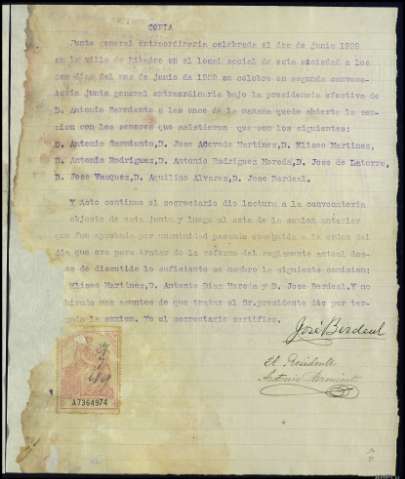 COPIA
Junta general extraordinaria celebrada el dia de junio 1928
en la villa de Ribadeo en el local social de esta sociedad a los
dias del mes de junio de 1928 se celebro en segunda convoca-
toria junta general extraordinaria bajo la presidencia efectiva de
D. Antonio Sarmiento a las once de la mañana quedo abierta la se-
sion con los señores que asistieron que son los siguientes:
D. Antonio Sarmiento,D. Jose Acevedo Martinez,D. Eliseo Martinez,
D. Antonio Rodriguez,D. Antonio Rodriguez Moreda,D. Jose de Latorre,
D. Jose Vazquez,D. Aquilino Alvarez,D. Jose Berdeal.
Y Acto continuo el secretario dio lectura a la convocatoria
objeto de esta junta y luego al acta de la sesion anterior
que fue aprobada por unanimidad pasando enseguida a la orden del
dia que era para tratar de la reforma del reglamento actual des-
pues de discutido lo suficiente se nombro la siguiente comision:
Eliseo Martinez,D. Antonio Diaz Moreda y D. Jose Berdeal.Y no
habiendo mas asuntos de que tratar el Sr.presidente dio por ter-
minada la sesion. Yo el secretario certifico.
José Berdeal
El Presidente
Antonio Sarmiento
A7364974